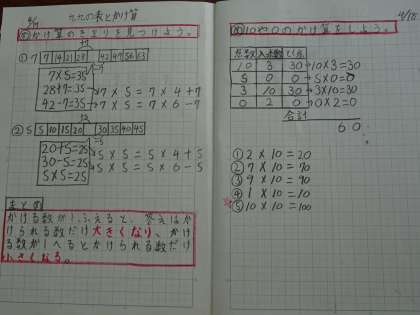 九九の表とかけ算
かけ算のきまりを見つけよう。
① 7 7 14 21 28 42 49 56 63
7×5=35
28+7=35
42-7=35
7×5=7×4+7
7×5=7×6-7
② 5 5 10 15 20 30 35 40 45
20+5=25
30-5=25
5×5=25
5×5=5×4+5
5×5=5×6-5
まとめ
かける数が1ふえると、答えはか
けられる数だけ大きくなり、かけ
る数が1へるとかけられる数だけ
小さくなる。
4/18
10や0のかけ算をしよう。
点数 入った数
10 3 30→10×3=30
5 0 0→5×0=0
3 10 30→3×10=30
0 2 0→0×2=0
合計
60
① 2×10=20
② 7×10=70
③ 9×10=90
④ 1×10=10
⑤ 10×10=100